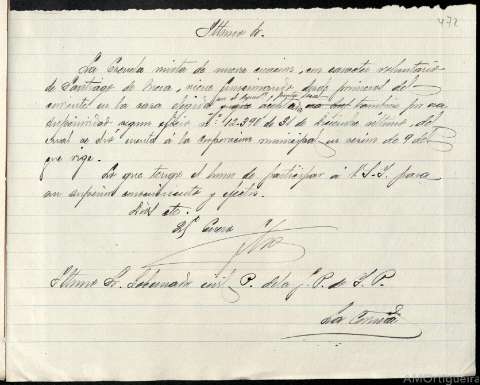 472
Iltmo Sr.
La Escuela mixta de nueva creacion, con caracter voluntario
de Santiago de Mera, viene funcionando desde primeros del
corriente en la casa
superioridad segun oficio nº 12.398 de 31 de diciembre último, del
cual se dió cuenta á la Corporacion municipal en sesion de 9 del
que rige.
Lo que tengo el honor de participar á V.S.I. para
su superior conocimiento y efectos.
Dios etc.
25 Enero
Iltmo Sr. Gobernador civil P. de la J. P. de I. P.
La Coruña
AMOrtigueira